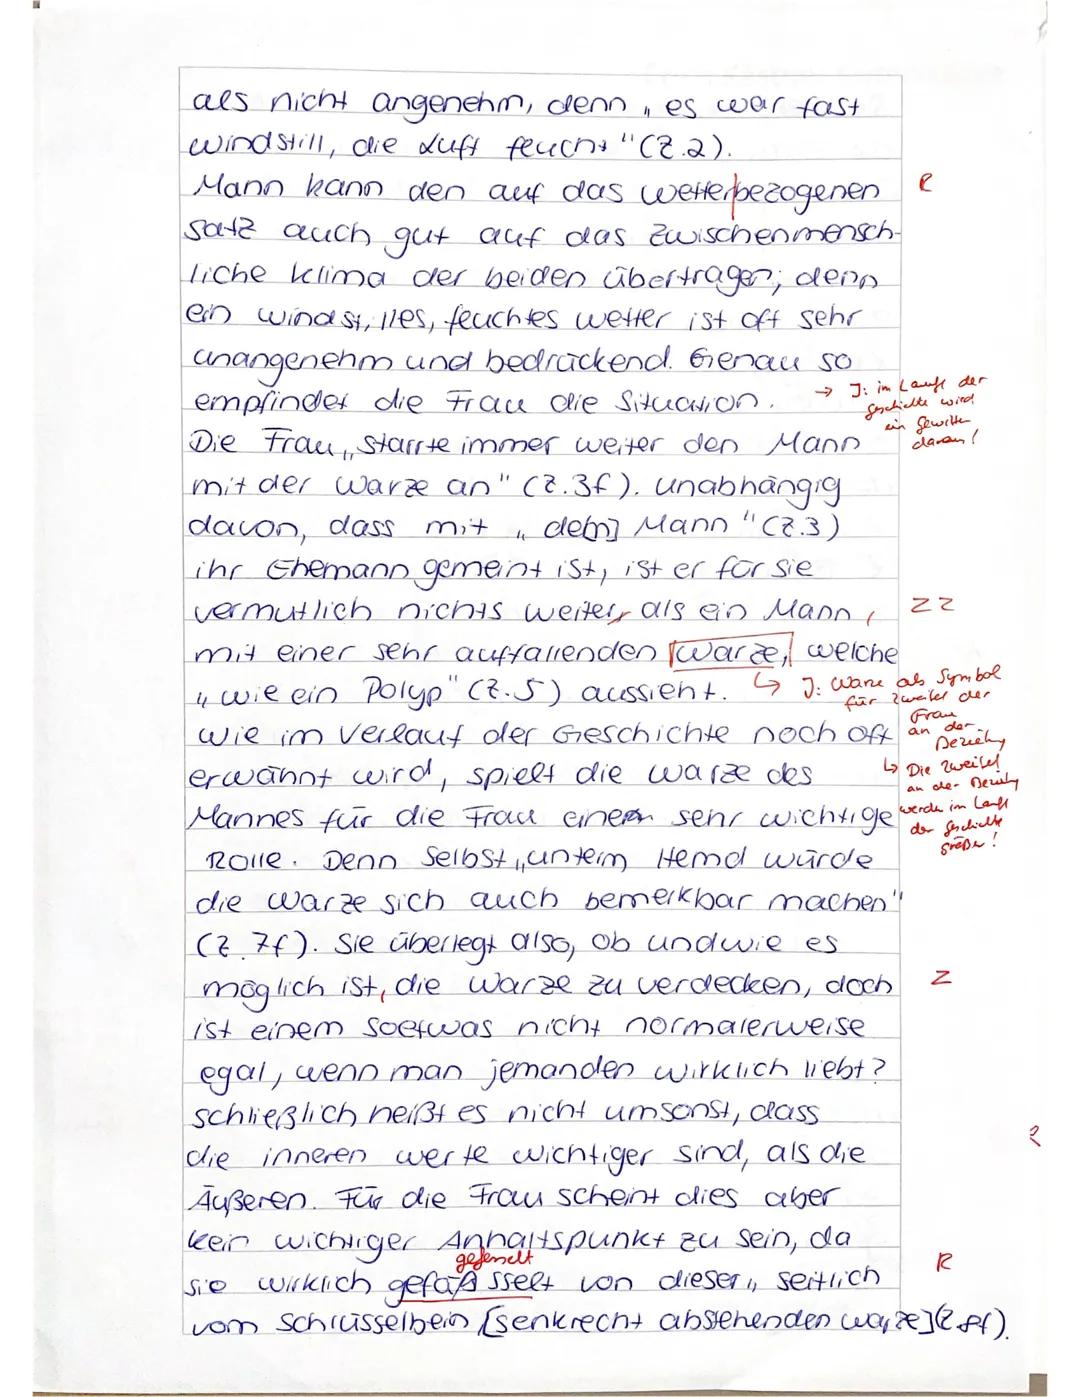 als nicht angenehm, denn „es war fast
windstill, die Luft feucht" (Z.2).
Mann kann den auf das wetterbezogenen R
Satz auch gut auf das zwischenmensch-
liche Klima der beiden übertragen, denn
ein windstilles, feuchtes Wetter ist oft sehr
unangenehm und bedrückend. Genau so
empfindet die Frau die Situation. → I: im Laufe der
Geschichte wird
ein Gewitter
daraus!
Die Frau „starrte immer weiter den Mann
mit der Warze an" (Z.3f). Unabhängig
davon, dass mit „de[m] Mann" (Z.3)
ihr Ehemann gemeint ist, ist er für sie
vermutlich nichts weiter, als ein Mann, ZZ
mit einer sehr auffallenden Warze, welche
„wie ein Polyp" (Z.5) aussieht. ↳ I: Warze als Symbol
für Zweifel der
Frau
an der
Beziehung
↳ Die Zweifel
an der Beziehung
werden im Laufe
der Geschichte
größer!
Wie im Verlauf der Geschichte noch oft
erwähnt wird, spielt die Warze des
Mannes für die Frau eine sehr wichtige
Rolle. Denn selbst „unterm Hemd würde
die Warze sich auch bemerkbar machen"
(Z.7f). Sie überlegt also, ob und wie es
möglich ist, die Warze zu verdecken, doch Z
ist einem soetwas nicht normalerweise
egal, wenn man jemanden wirklich liebt?
Schließlich heißt es nicht umsonst, dass
die inneren Werte wichtiger sind, als die R
Äußeren. Für die Frau scheint dies aber
kein wichtiger Anhaltspunkt zu sein, da
gefesselt
sie wirklich gefäßsselt von dieser „seitlich R
vom Schlüsselbein [senkrecht abstehenden Warze] (Z.8f).